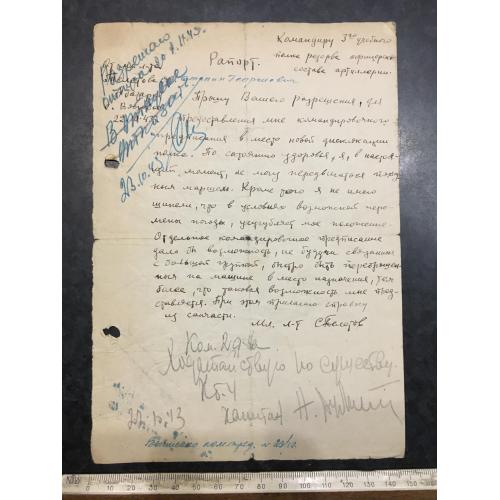 Командиру 3го учебного
полка резерва офицерского
состава артиллерии.
Рапорт.
Разрешаю
23.10.43
Прошу Вашего разрешения, для
предоставления мне командировочного
предписания в место новой дислокации
полка. По состоянию здоровья, я, в настоя-
щий момент, не могу передвигаться
маршем. Кроме того я не имею
шинели, что в условиях возможной пере-
мены погоды, усугубляет мое положение.
Отдельное командировочное предписание
дало бы возможность, не будучи связанным
с большой группой, быстро быть переброшен-
ным на машине в место назначения, тем
более, что таковая возможность мне пред-
ставляется. При этом прилагаю справку
из санчасти.
Мл. л-т
Ком. 2 д-на
Ходатайствую по существу.
Кб-4
капитан Н.
22.10.43
Выписано командир. 23/10.